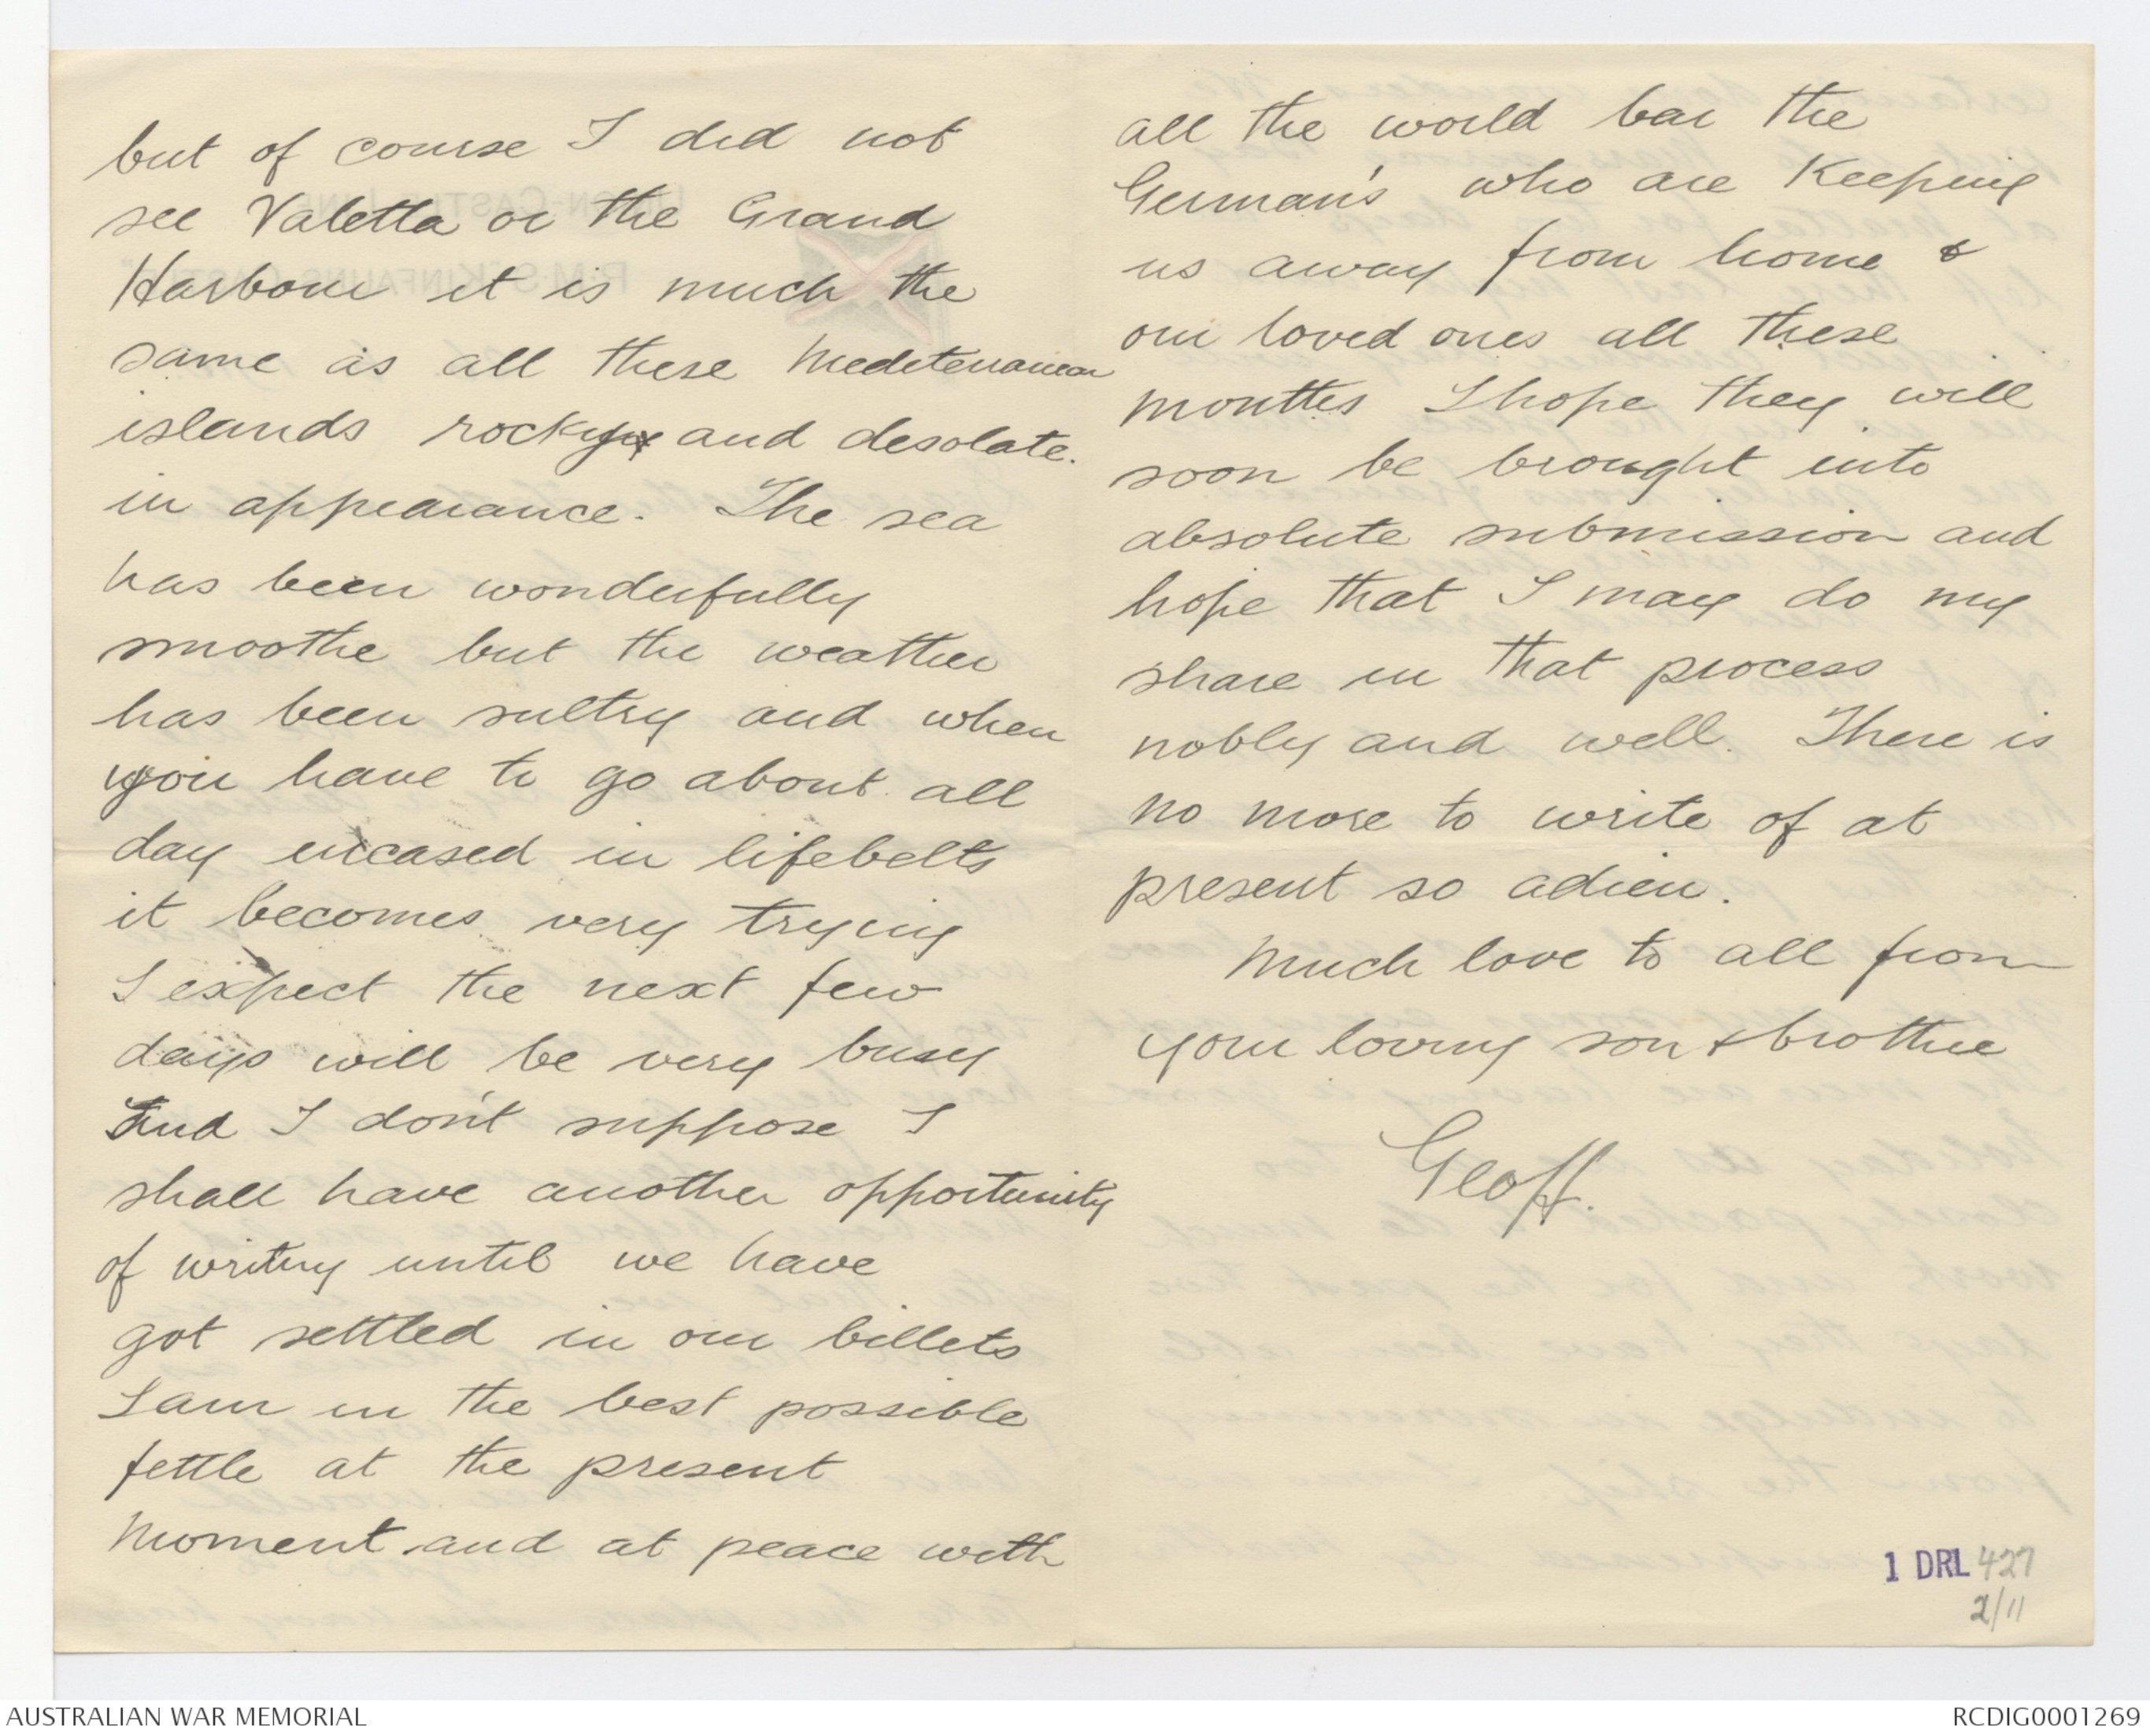 but of course I did not
see Valetta or the Grand
Harbour it is much the
same as all these Mediteranean
islands rocky and desolate.
in appearance. The sea
has been wonderfully
smoothe but the weather
has been sultry and when
you have to go about all
day encased in lifebelts
it becomes very trying
I expect the next few
days will be very busy
and I don't suppose I
shall have another opportunity
of writing until we have
got settled in our billets
I am in the best possible
fettle at the present
moment and at peace with
all the world bar the
German's who are Keeping
us away from home &
our loved ones all these
months I hope they will
soon be brought into
absolute submission and
hope that I may do my
share in that process
nobly and well. There is
no more to write of at
present so adieu.
Much love to all from
your loving son & brother
Geoff.
1 DRL 427
2/11
AUSTRALIAN WAR MEMORIAL
RCDIG0001269